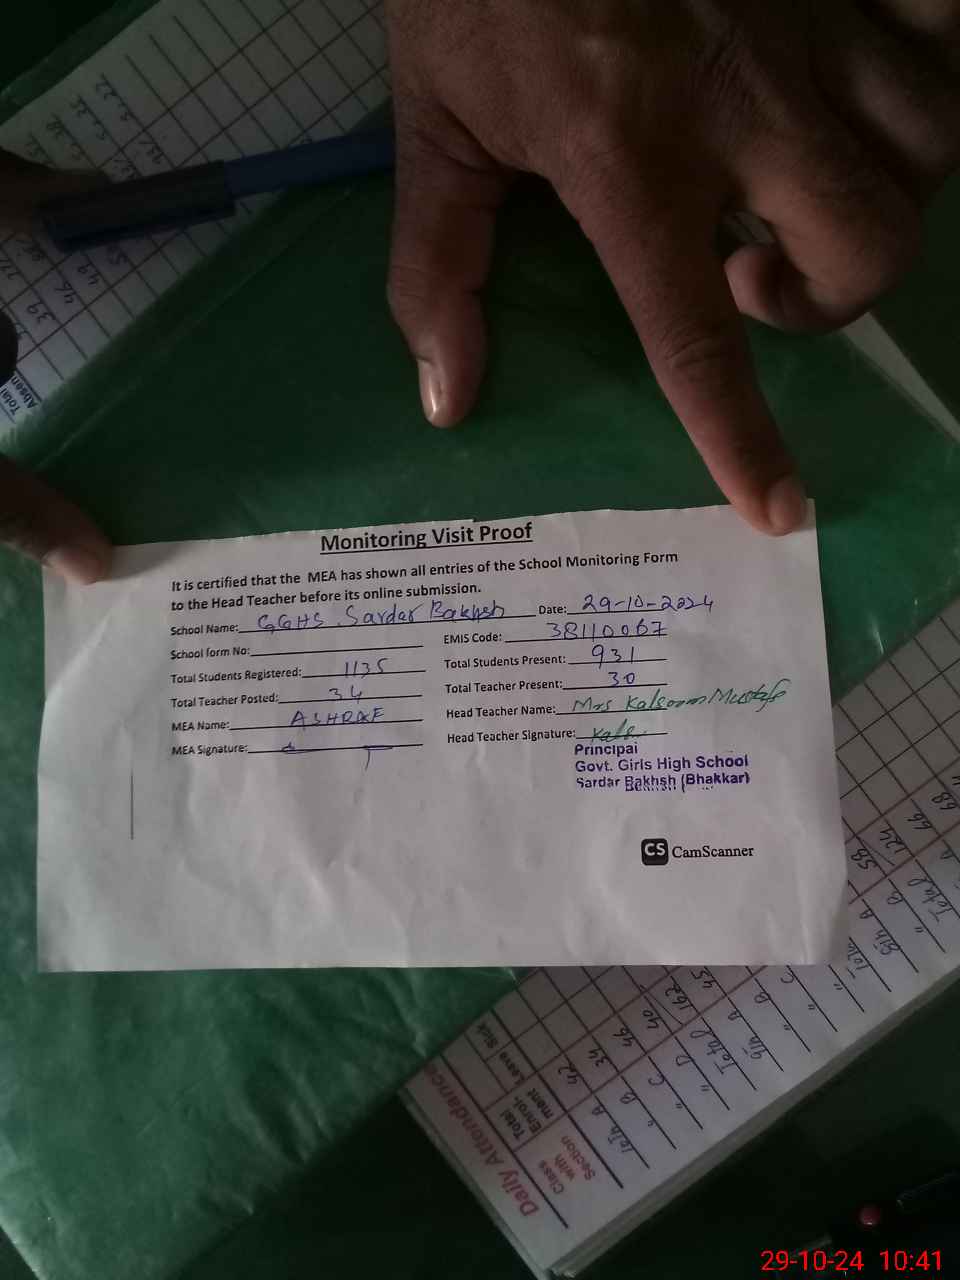 Monitoring Visit Proof
It is certified that the MEA has shown all entries of the School Monitoring Form
to the Head Teacher before its online submission.
School Name: GGHS Sardar Bakhsh Date: 29-10-2024
School form No: EMIS Code: 38110067
Total Students Registered: 1135 Total Students Present: 931
Total Teacher Posted: 34 Total Teacher Present: 30
MEA Name: ASHRAF Head Teacher Name: Mrs Kalsoom Mustafa
MEA Signature: Head Teacher Signature:
Principal
Govt. Girls High School
Sardar Bakhsh (Bhakkar)
CS CamScanner
Daily Attendance
Class with Section Total Enrol- ment Leave Sick
10th A 42
" B 34
" C 46
" D 40
Total 162
9th A 45
" B
" C
8th A 58
" B 124
Total 66
Total
Absen
29-10-24 10:41